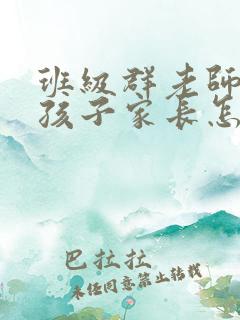 班級群老師
孩子家長怎
巴拉拉
未任同意禁止转载